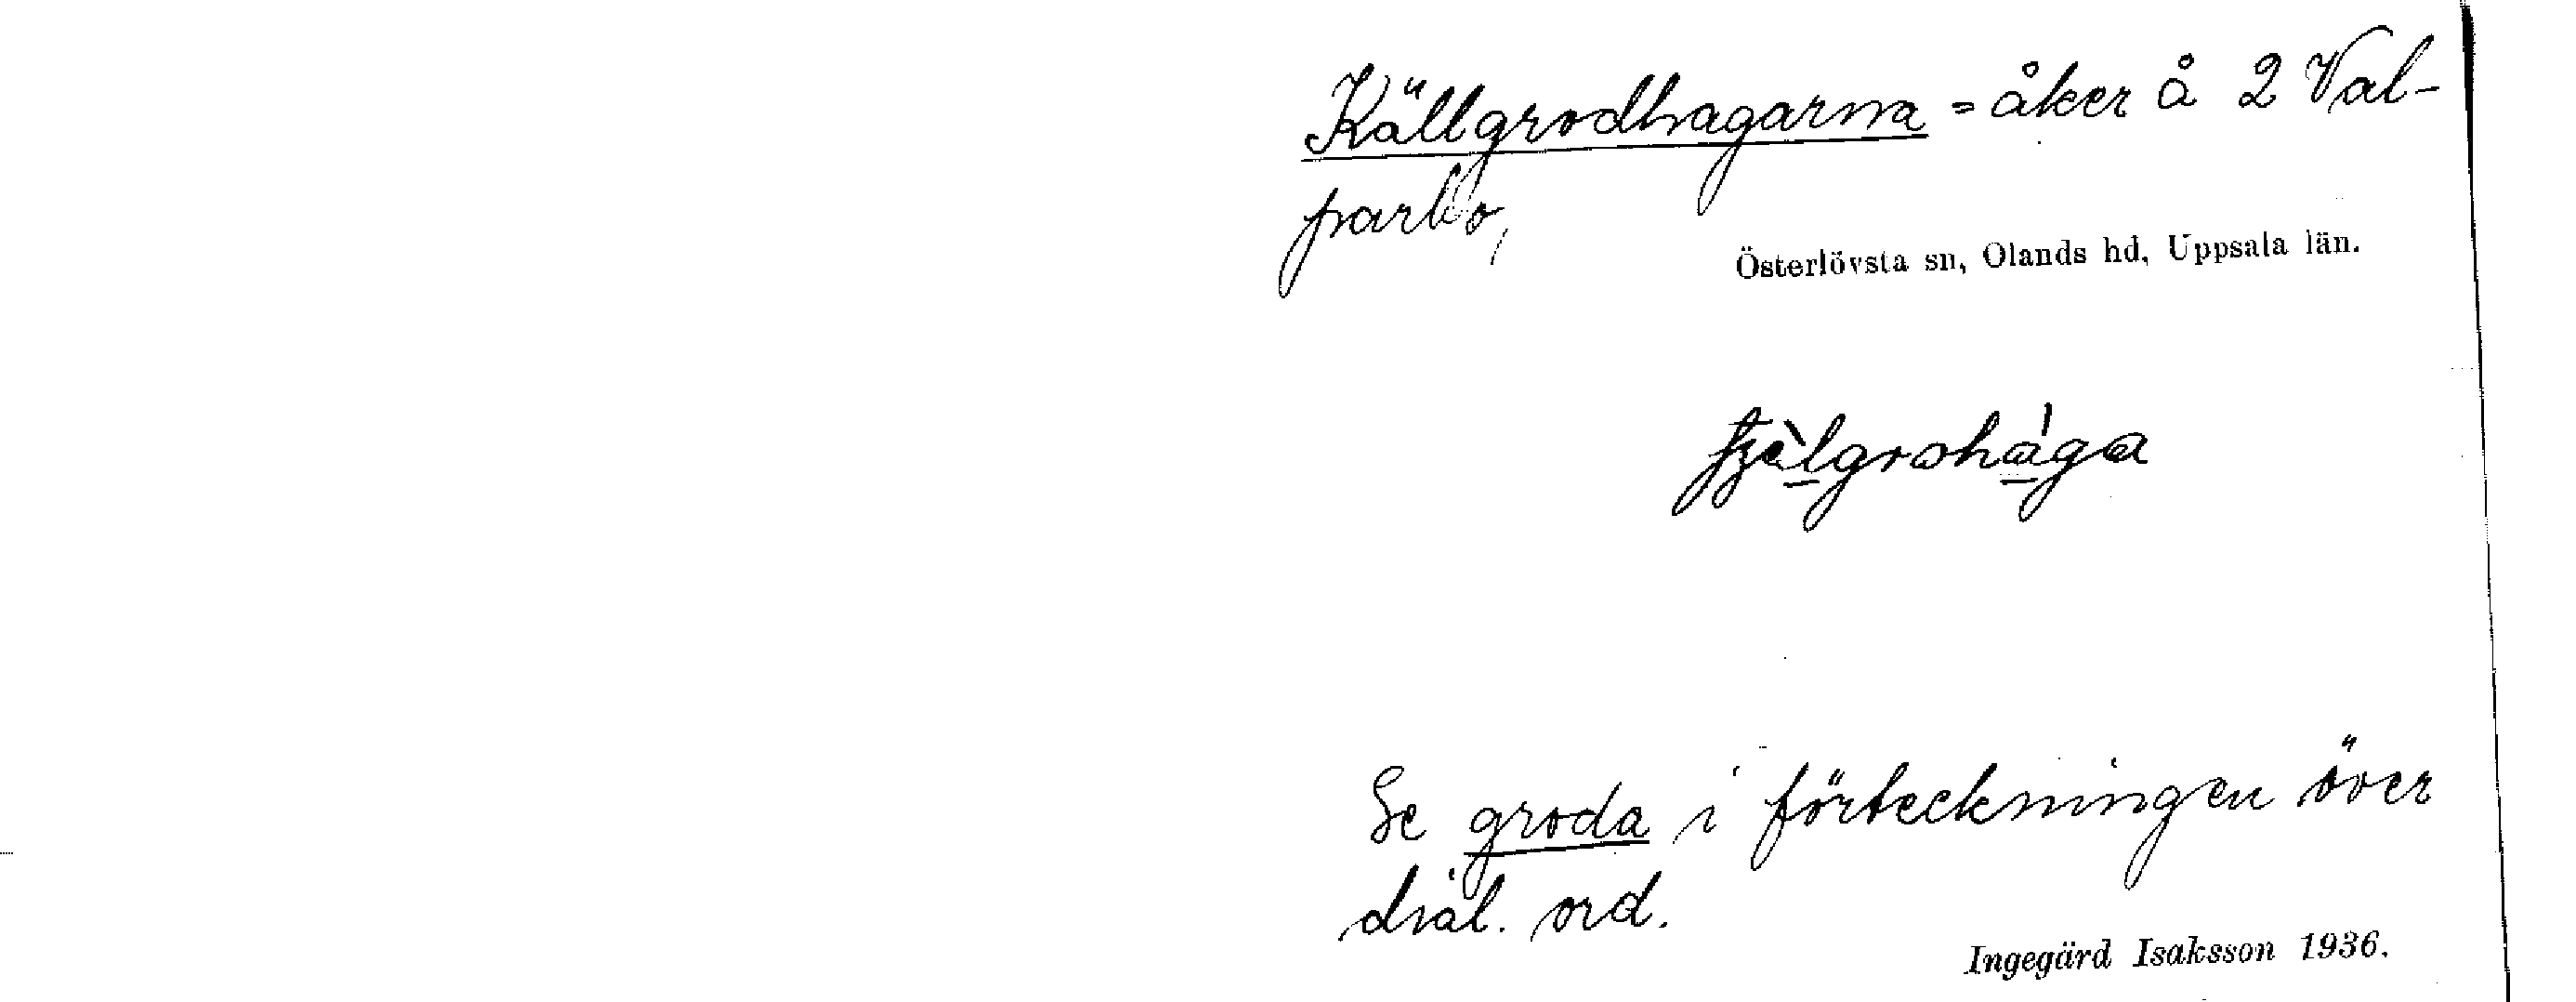 Källgrodhagarna = åker å 2 Val-
parbo,
Österlövsta sn, Olands hd, Uppsala län.
Se groda i förteckningen över
dial. ord.
Ingegärd Isaksson 1936.